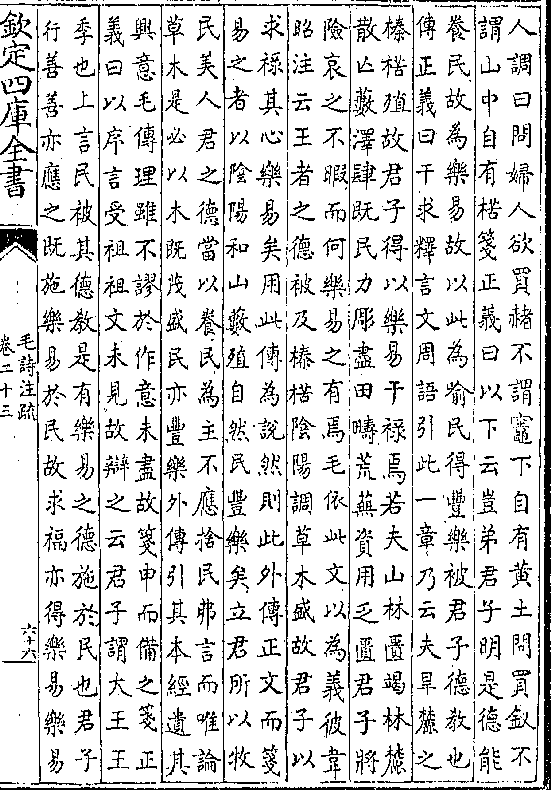 人調曰問婦人欲買赭不謂竈下自有黄土問買釵不
謂山中自有楛箋正義曰以下云豈弟君子明是德能
養民故為樂易故以此為喻民得豐樂被君子德教也
傳正義曰干求釋言文周語引此一章乃云夫旱麓之
榛楛殖故君子得以樂易干禄焉若夫山林匱竭林麓
散亡藪澤肆既民力彫盡田疇荒蕪資用乏匱君子將
險哀之不暇而何樂易之有焉毛依此文以為義彼韋
昭注云王者之德被及榛楛陰陽調草木盛故君子以
求禄其心樂易矣用此傳為說然則此外傳正文而箋
易之者以陰陽和山藪殖自然民豐樂矣立君所以牧
民美人君之德當以養民為主不應捨民弗言而唯論
草木是必以木既茂盛民亦豐樂外傳引其本經遺其
興意毛傳理雖不謬於作意未盡故箋申而備之箋正
義曰以序言受祖祖文未見故辯之云君子謂大王王
季也上言民被其德教是有樂易之德施於民也君子
行善善亦應之既施樂易於民故求福亦得樂易樂易
欽定四庫全書
毛詩注疏
卷二十三
六十六